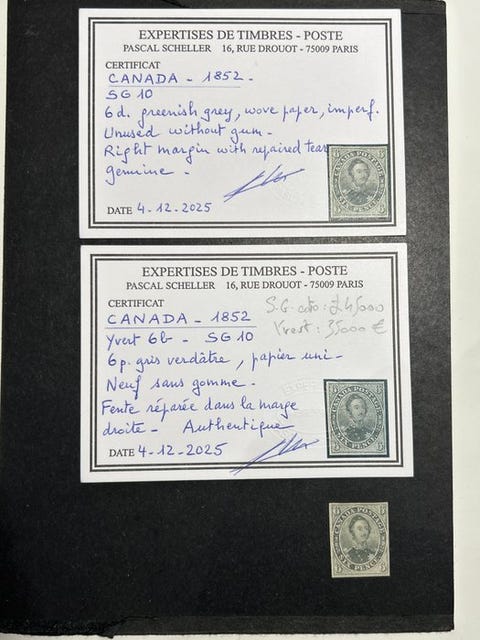 EXPERTISES DE TIMBRES - POSTE
PASCAL SCHELLER 16, RUE DROUOT - 75009 PARIS
CERTIFICAT
CANADA - 1852 -
SG 10
6d. greenish grey, wove paper, imperf.
Unused without gum -
Right margin with repaired tear
genuine -
CANADA POSTAGE
SIX PENCE
DATE 4-12-2025
EXPERTISES DE TIMBRES - POSTE
PASCAL SCHELLER 16, RUE DROUOT - 75009 PARIS
CERTIFICAT
S.G. cote : £45000
CANADA - 1852
Yvert : 35000 €
Yvert 6b - SG 10
6p. gris verdâtre, papier uni -
Neuf sans gomme -
Fente réparée dans la marge
droite - Authentique
CANADA POSTAGE
SIX PENCE
DATE 4-12-2025
CANADA POSTAGE
SIX PENCE